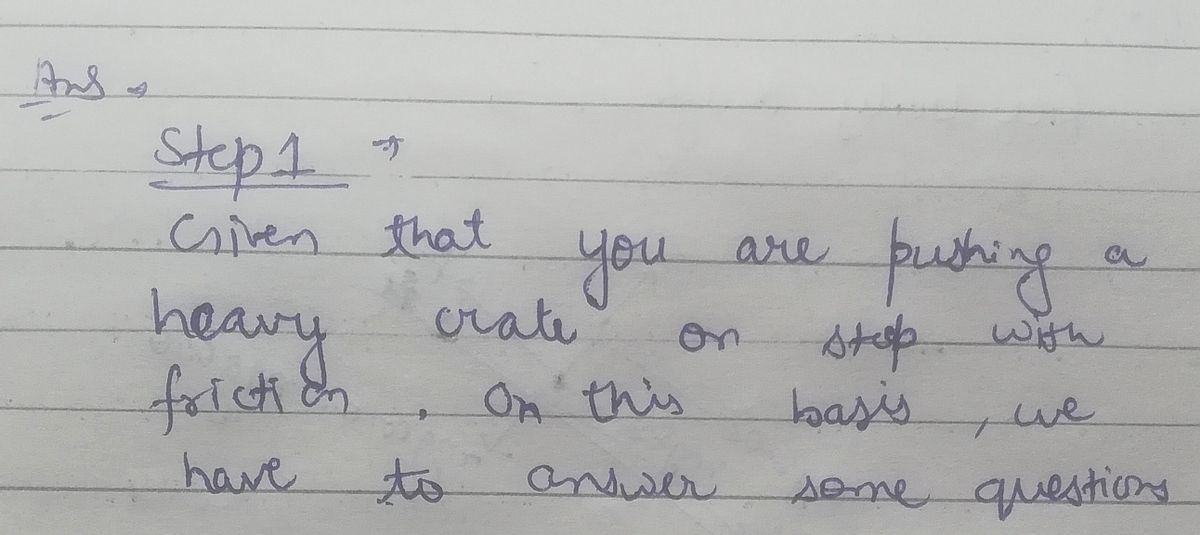 Ans →
Step 1 →
Given that you are pushing a
heavy crate on step with
friction. On this basis, we
have to answer some questions